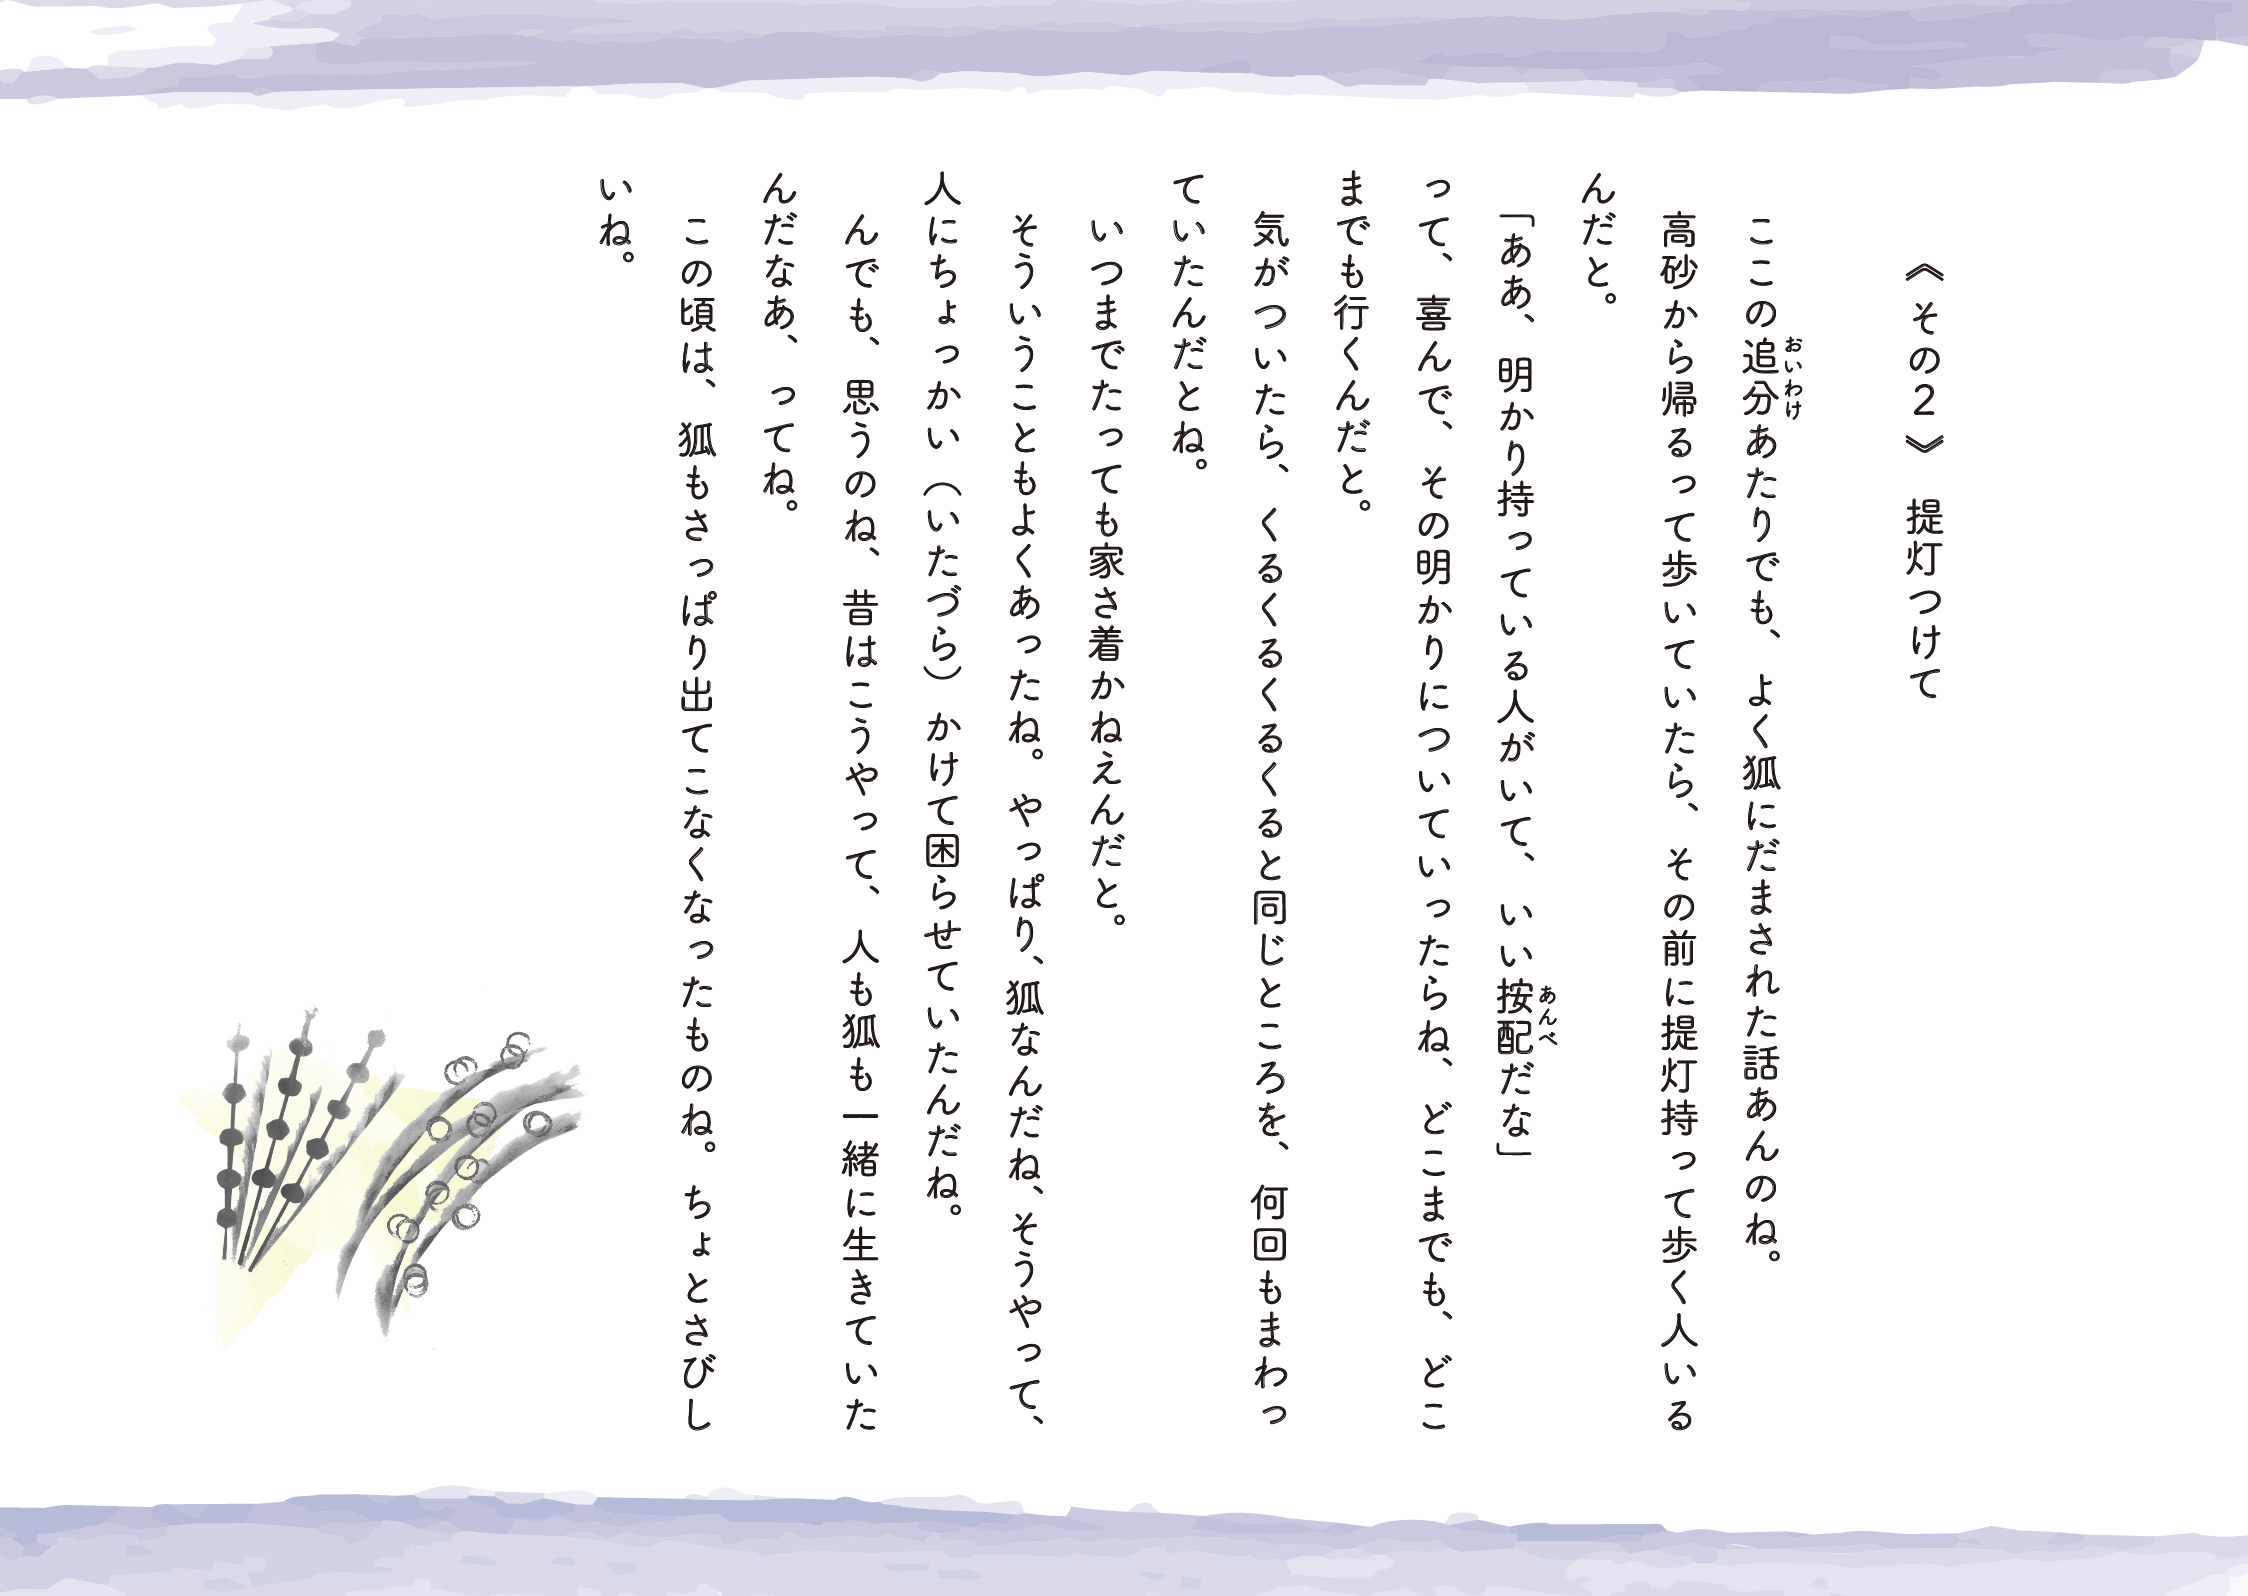 《その２》　提灯つけて
ここの追分あたりでも、よく狐にだまされた話あんのね。
おいわけ
高砂から帰るって歩いていたら、その前に提灯持って歩く人いる
んだと。
「ああ、明かり持っている人がいて、いい按配だな」
あんべ
って、喜んで、その明かりについていったらね、どこまでも、どこ
までも行くんだと。
気がついたら、くるくるくるくると同じところを、何回もまわっ
ていたんだとね。
いつまでたっても家さ着かねえんだと。
そういうこともよくあったね。やっぱり、狐なんだね、そうやって、
人にちょっかい（いたづら）かけて困らせていたんだね。
んでも、思うのね、昔はこうやって、人も狐も一緒に生きていた
んだなあ、ってね。
この頃は、狐もさっぱり出てこなくなったものね。ちょとさびし
いね。